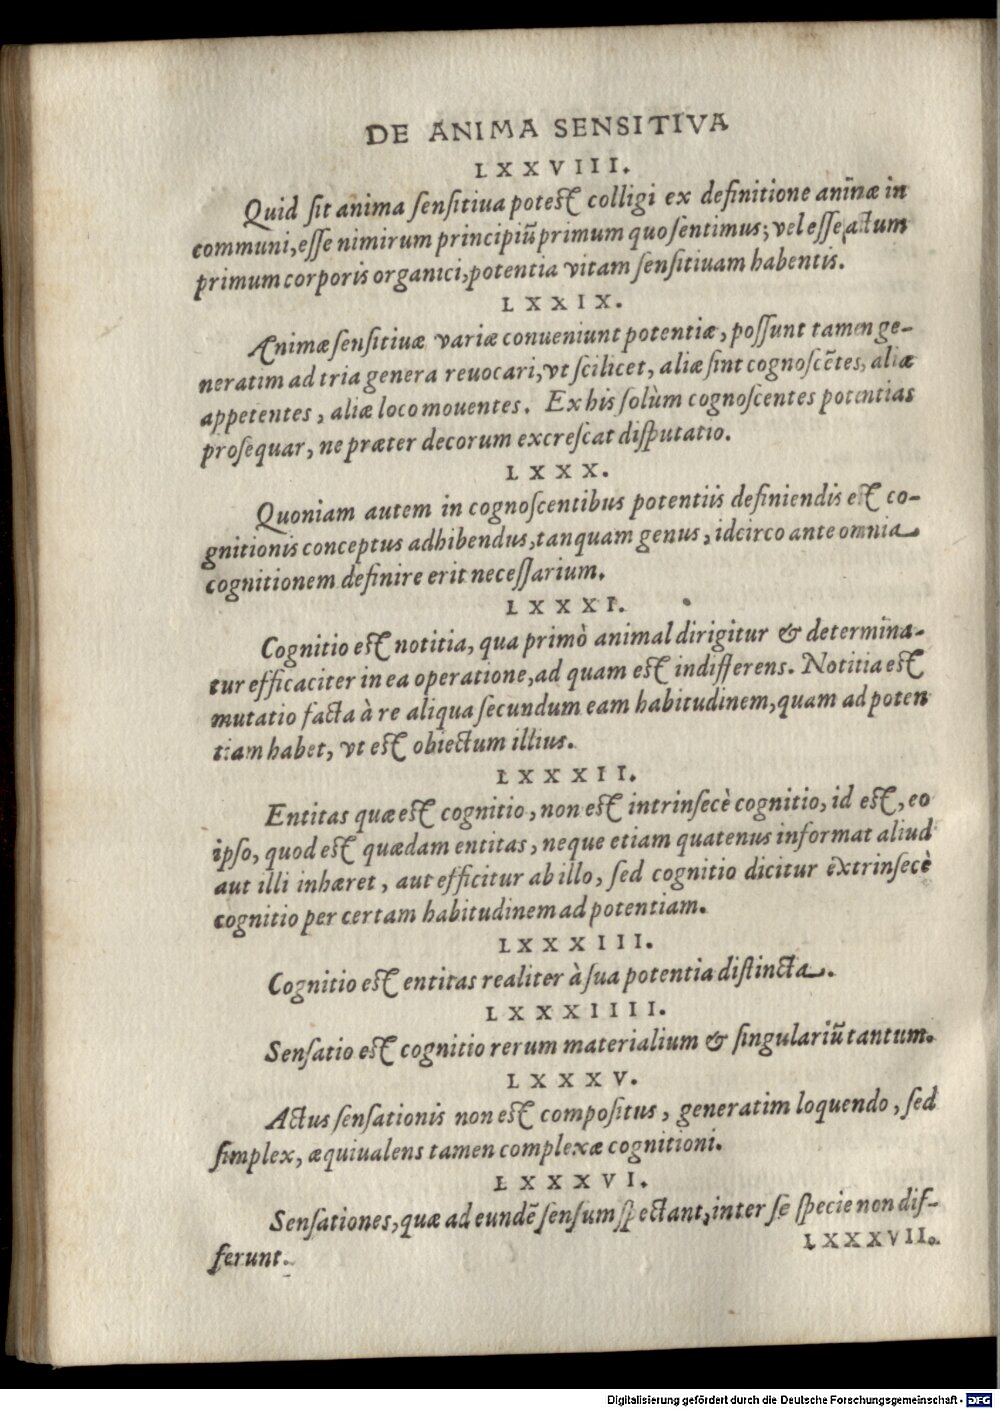 DE ANIMA SENSITIVA
LXXVIII.
Quid ſit anima ſenſitiua poteſt colligi ex definitione animæ in
communi, eſſe nimirum principiũ primum quo ſentimus; vel eſſe actum
primum corporis organici, potentia vitam ſenſitiuam habentis.
LXXIX.
Animæ ſenſitiuæ variæ conueniunt potentiæ, poſſunt tamen ge-
neratim ad tria genera reuocari, vt ſcilicet, aliæ ſint cognoſcẽtes, aliæ
appetentes, aliæ loco mouentes. Ex his ſolùm cognoſcentes potentias
proſequar, ne præter decorum excreſcat diſputatio.
LXXX.
Quoniam autem in cognoſcentibus potentiis definiendis eſt co-
gnitionis conceptus adhibendus, tanquam genus, idcirco ante omnia
cognitionem definire erit neceſſarium.
LXXXI.
Cognitio eſt notitia, qua primò animal dirigitur & determina-
tur efficaciter in ea operatione, ad quam eſt indifferens. Notitia eſt
mutatio facta à re aliqua ſecundum eam habitudinem, quam ad poten
tiam habet, vt eſt obiectum illius.
LXXXII.
Entitas quæ eſt cognitio, non eſt intrinſecè cognitio, id eſt, eo
ipſo, quod eſt quædam entitas, neque etiam quatenus informat aliud
aut illi inhæret, aut efficitur ab illo, ſed cognitio dicitur extrinſecè
cognitio per certam habitudinem ad potentiam.
LXXXIII.
Cognitio eſt entitas realiter à ſua potentia diſtincta.
LXXXIIII.
Senſatio eſt cognitio rerum materialium & ſingulariũ tantum.
LXXXV.
Actus ſenſationis non eſt compoſitus, generatim loquendo, ſed
ſimplex, æquiualens tamen complexæ cognitioni.
LXXXVI.
Senſationes, quæ ad eundẽ ſenſum ſpectant, inter ſe ſpecie non dif-
ferunt.
LXXXVII.
Digitalisierung gefördert durch die Deutsche Forschungsgemeinschaft - DFG